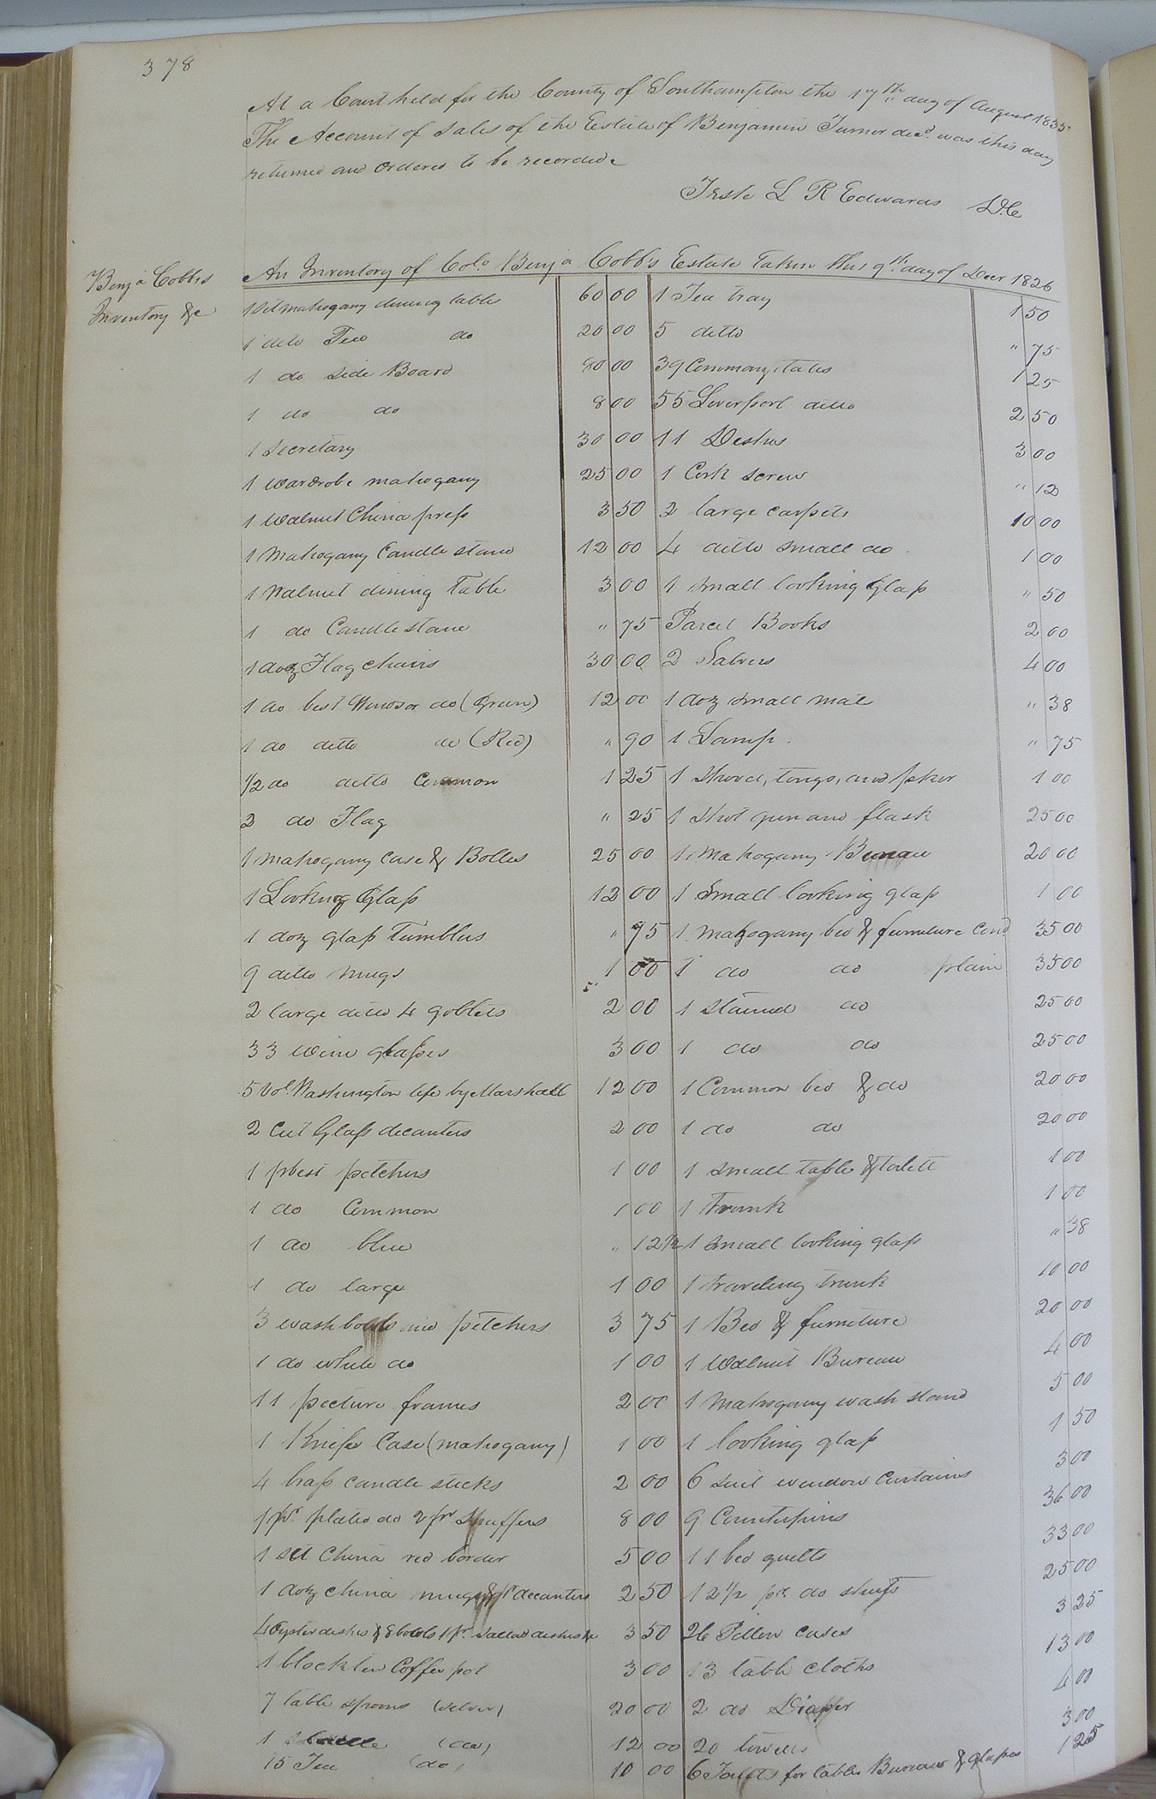 378
At a Court held for the County of Southampton the 17th day of August 1835
The Account of Sales of the Estate of Benjamin Turner decd. was this day
returned and ordered to be recorded
Teste L R Edwards D.C
Benja Cobbs
Inventory &c
An Inventory of Colo. Benja Cobb's Estate taken this 9th. day of Decr 1826
1 Set mahogany dining table 60 00
1 ditto Tea do 20 00
1 do Side Board 80 00
1 do do 8 00
1 Secretary 30 00
1 wardrobe mahogany 25 00
1 Walnut China press 3 50
1 Mahogany Candle stand 12 00
1 Walnut dining Table 3 00
1 do Candle stand " 75
1 doz Flag chairs 30 00
1 do best Windsor do (Green) 12 00
1 do ditto do (Red) " 90
1/2 do ditto Common 1 25
2 do Flag " 25
1 mahogany Case & Bottles 25 00
1 Looking Glass 12 00
1 doz glass Tumblers " 95
9 ditto mugs 1 00
2 large ditto 4 goblets 2 00
33 wine glasses 3 00
5 Vol. Washington life by Marshall 12 00
2 Cut Glass decanters 2 00
1 pr best pitchers 1 00
1 do Common 1 00
1 do blue " 12 1/2
1 do large 1 00
3 wash bowls and pitchers 3 75
1 do white do 1 00
11 picture frames 2 00
1 Knife Case (mahogany) 1 00
4 brass candle sticks 2 00
1 pr. plated do 2 pr Snuffers 8 00
1 set China red border 5 00
1 doz china mugs & 1 decanters 2 50
4 Oyster dishes & 8 bowls 1 pr. Sallad dishes &c 3 50
1 block tin Coffee pot 3 00
7 table spoons (silver) 20 00
1 (do) 12 00
15 Tea (do) 10 00
1 Tea tray 1 50
5 ditto " 75
39 Common plates 1 25
55 Liverpool ditto 2 50
11 Dishes 3 00
1 Cork screw " 12
2 large carpets 10 00
4 ditto small do 1 00
1 small looking Glass " 50
Parcel Books 2 00
2 Salvers 4 00
1 doz small mats " 38
1 Lamp " 75
1 Shovel, tongs, and poker 1 00
1 Shot gun and flask 25 00
1 Mahogany Bureau 20 00
1 Small looking glass 1 00
1 Mahogany bed & furniture Cond 35 00
1 do do plain 35 00
1 Stained do 25 00
1 do do 25 00
1 Common bed & do 20 00
1 do do 20 00
1 small table & toilett 1 00
1 Trunk 1 00
1 small looking glass " 38
1 traveling trunk 10 00
1 Bed & furniture 20 00
1 Walnut Bureau 4 00
1 Mahogany wash stand 5 00
1 looking glass 1 50
6 suit window Curtains 3 00
9 Counterpins 36 00
11 bed quilts 33 00
12 1/2 pr. do sheets 25 00
26 Pillow cases 3 25
13 table cloths 13 00
2 do Diaper 4 00
20 towells 3 00
6 Toiletts for tables Bureaus & glasses 1 25